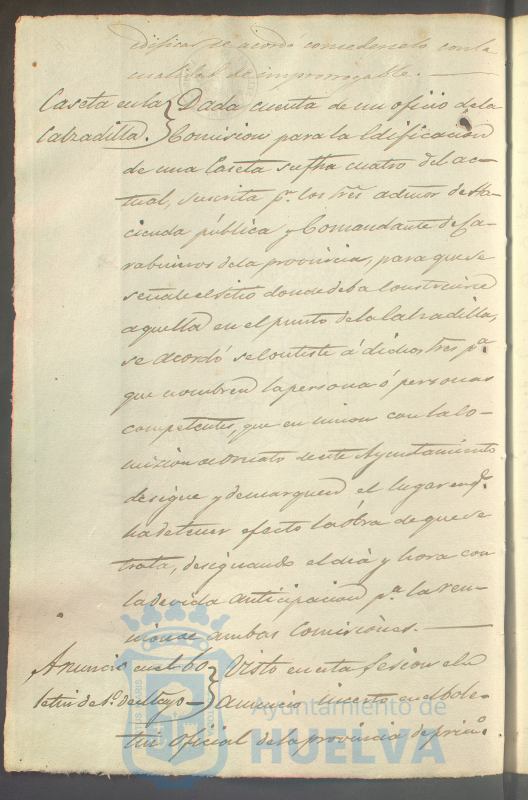 edificar se acordó concederselo con la
calidad de improrrogable.
Caseta en la
Calzadilla.
Dada cuenta de un oficio de la
Comision para la Edificacion
de una Caseta su fha cuatro del ac-
tual, suscrita pr. los Sres admor de Ha-
cienda pública y Comandante de Ca-
rabineros de la provincia, para que se
señale el sitio donde deba construirse
aquella en el punto de la Calzadilla,
se acordó se conteste á dichos Sres pa.
que nombren la persona ó personas
competentes, que en union con la Co-
mision de Ornato de este Ayuntamiento
designe y demarquen el lugar en q.
ha de tener efecto la óbra de que se
trata, designando el dia y hora con
la devida anticipacion pa. la reu-
nion de ambas Comisiones.
Anuncio en el Bo-
letin de 1º de Mayo
Visto en esta Sesion el
anuncio inserto en el Bole-
tin Oficial de la provincia de prim.º
Ayuntamiento de
HUELVA